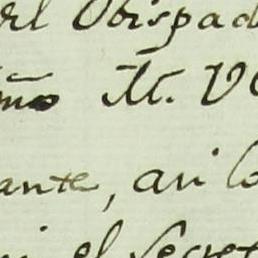 del Obispad
mo M. V
ante, asi lo
mi el Secret